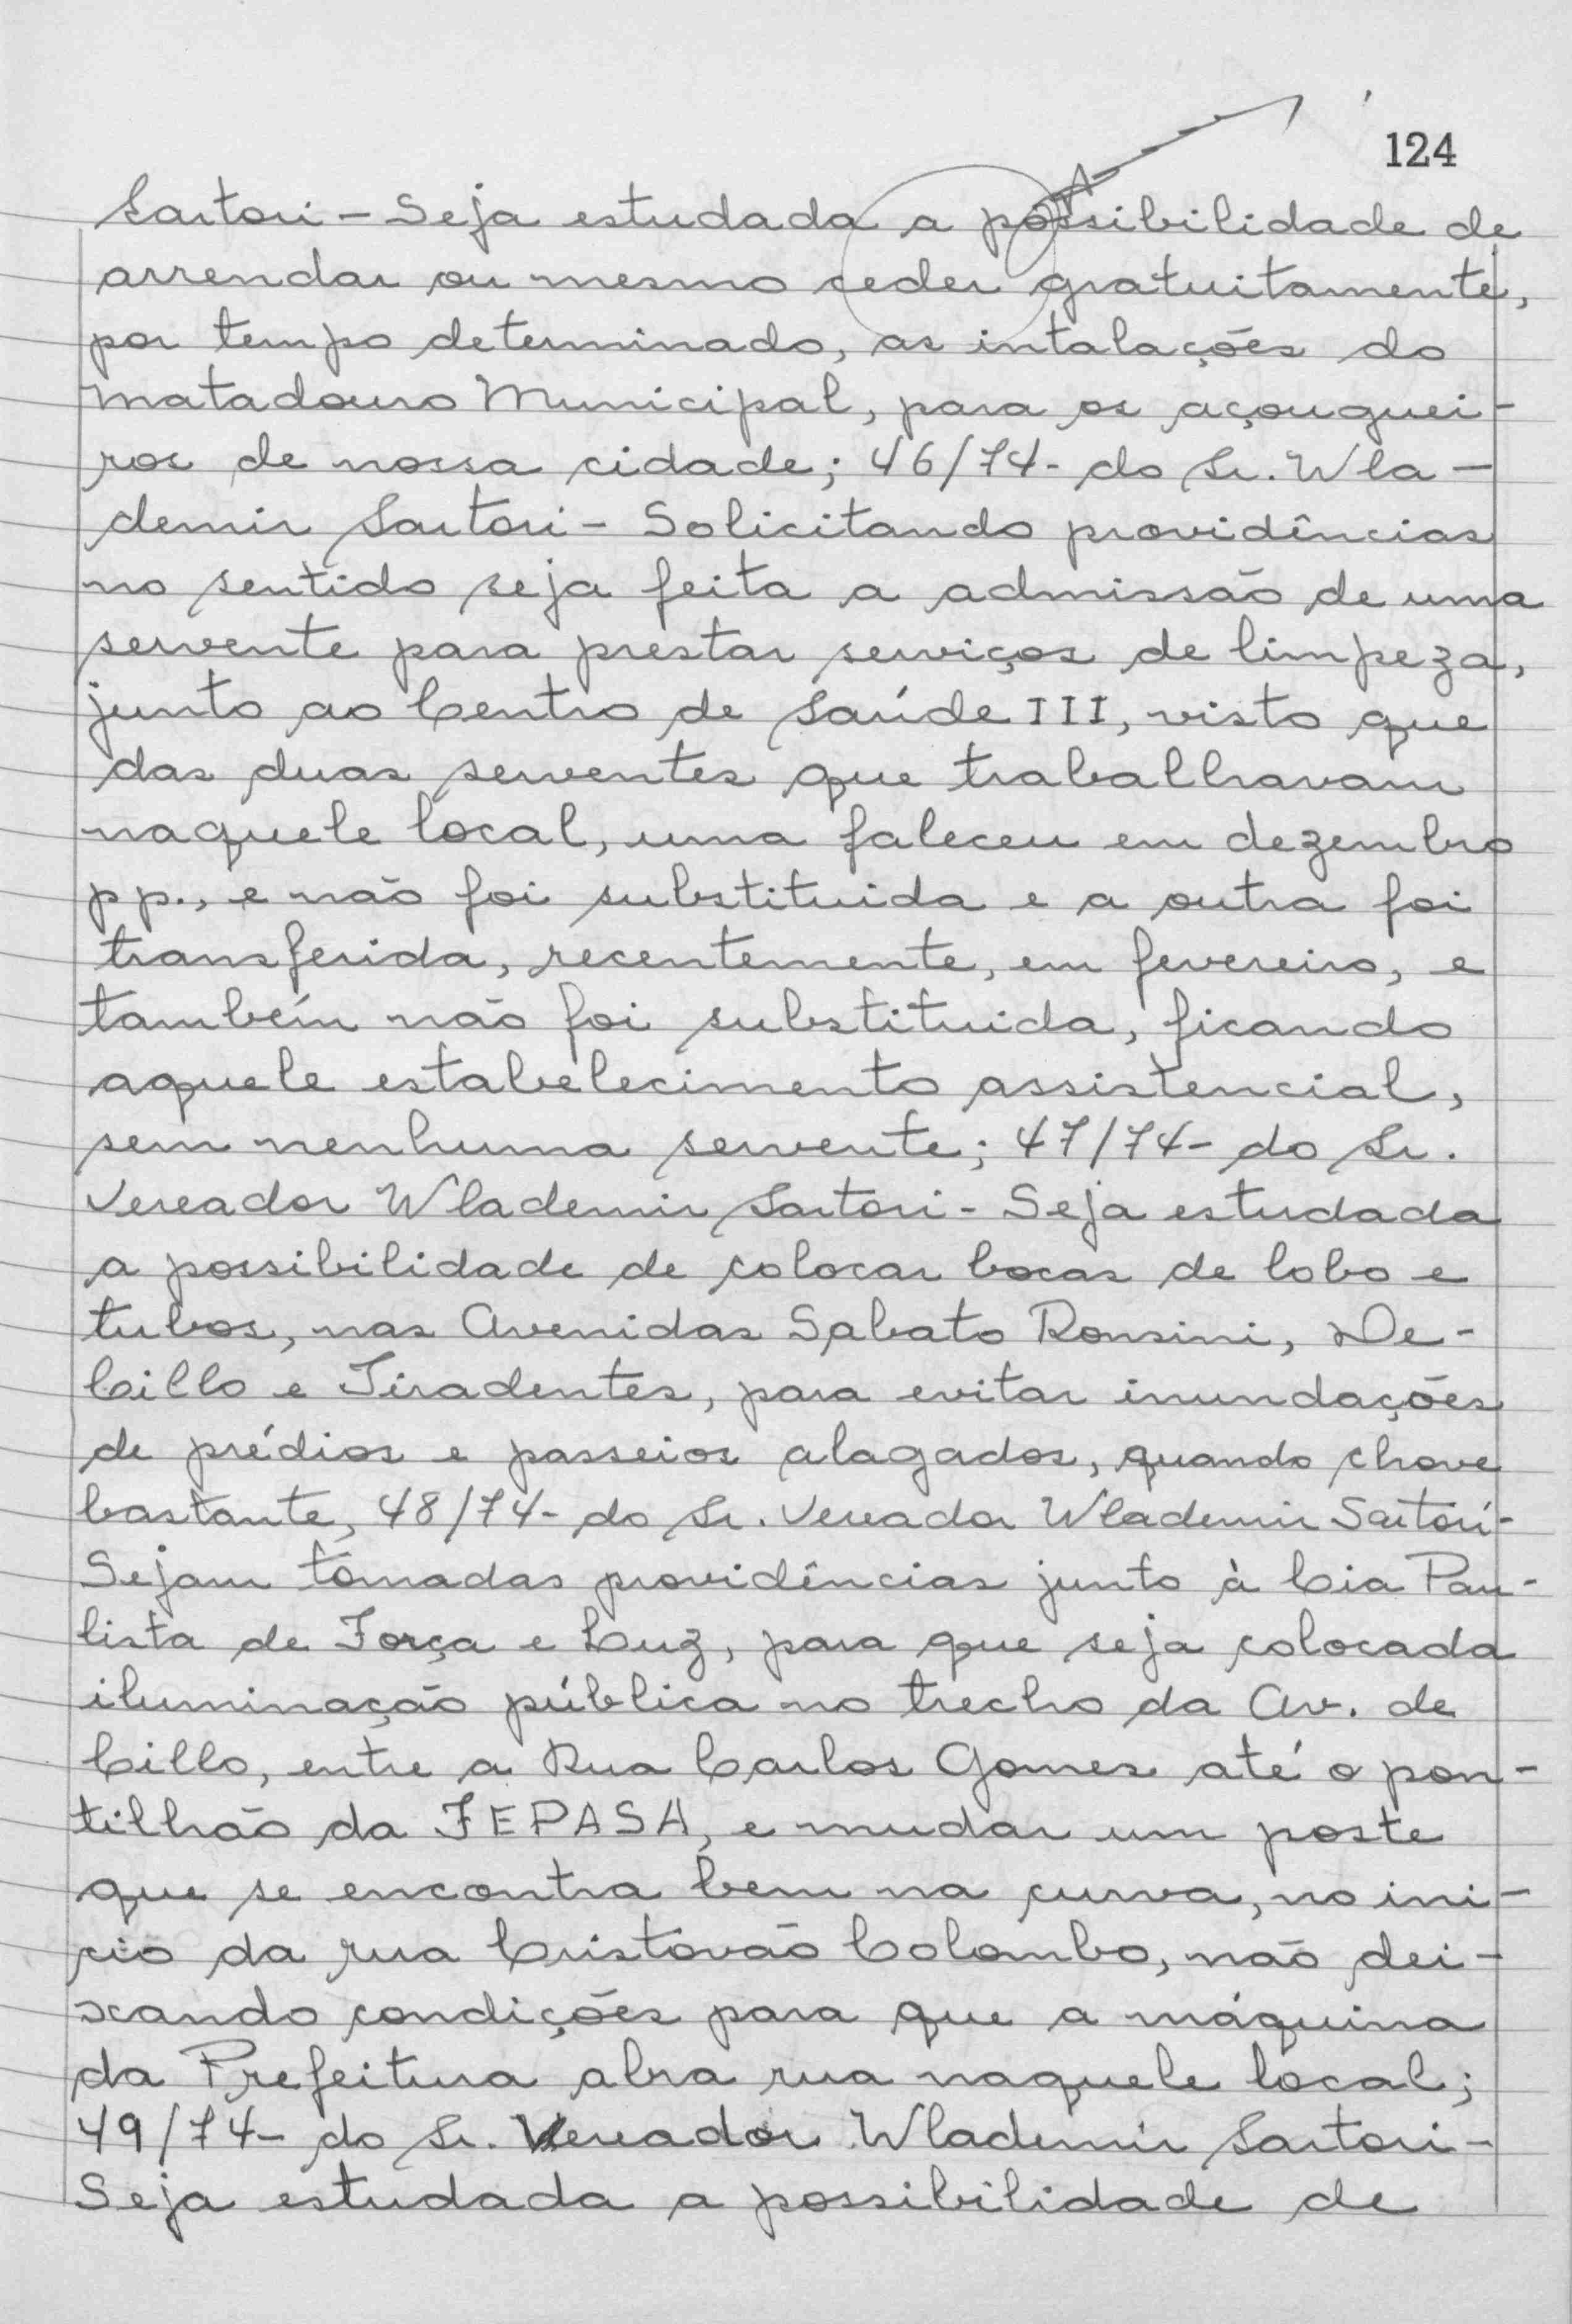 124
Sartori - Seja estudada a possibilidade de
arrendar ou mesmo ceder gratuitamente,
por tempo determinado, as intalações do
Matadouro Municipal, para os açouguei-
ros de nossa cidade; 46/74- do Sr. Wla-
demir Sartori - Solicitando providências
no sentido seja feita a admissão de uma
servente para prestar serviços de limpeza,
junto ao Centro de Saúde III, visto que
das duas serventes que trabalhavam
naquele local, uma faleceu em dezembro
pp., e não foi substituida e a outra foi
transferida, recentemente, em fevereiro, e
também não foi substituida, ficando
aquele estabelecimento assistencial,
sem nenhuma servente; 47/74- do Sr.
Vereador Wlademir Sartori - Seja estudada
a possibilidade de colocar bocas de lobo e
tubos, nas Avenidas Sabato Ronsini, De-
Cillo e Tiradentes, para evitar inundações
de prédios e passeios alagados, quando chove
bastante, 48/74- do Sr. Vereador Wlademir Sartori-
Sejam tomadas providências junto à Cia Pau-
lista de Força e Luz, para que seja colocada
iluminação pública no trecho da Av. de
Cillo, entre a Rua Carlos Gomes até o pon-
tilhão da FEPASA, e mudar um poste
que se encontra bem na curva, no ini-
cio da rua Cristovão Colombo, não dei-
xando condições para que a máquina
da Prefeitura abra rua naquele local;
49/74- do Sr. Vereador Wlademir Sartori-
Seja estudada a possibilidade de